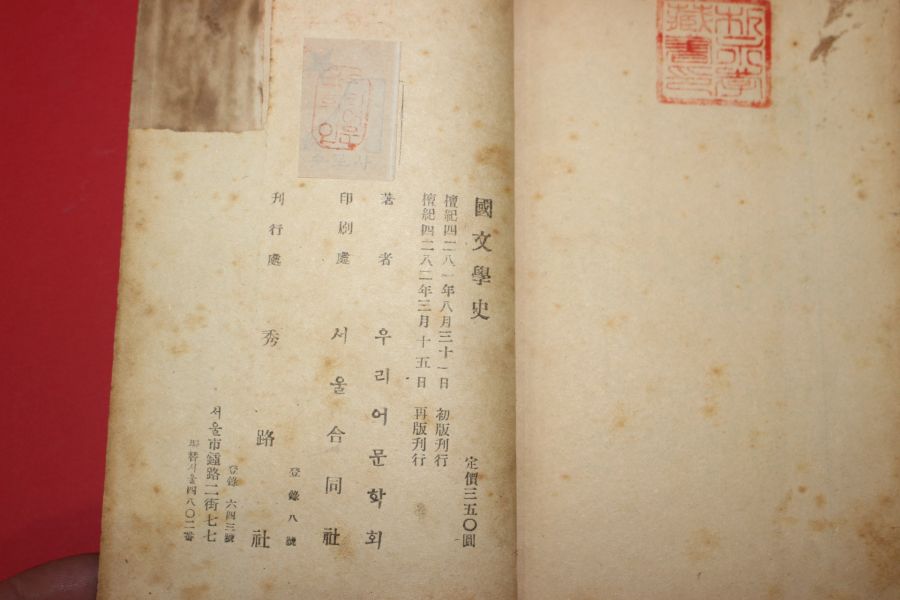 國文學史
定價三五〇圓
檀紀四二八一年八月三十一日 初版刊行
檀紀四二八二年三月十五日 再版刊行
著者 우리어문학회
印刷處 서울合同社
登錄八號
刊行處 秀路社
登錄 六四三號
서울市鍾路二街七七
振替서울四八〇二番
藏書印